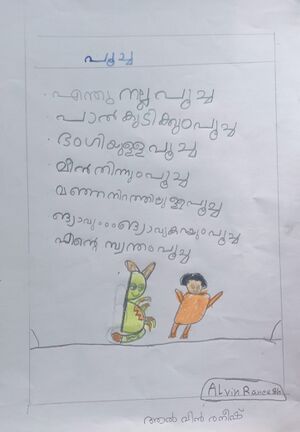 പൂച്ച
എന്തു നല്ല പൂച്ച
പാൽകുടിക്കും പൂച്ച
ഭംഗിയുള്ള പൂച്ച
മീൻ തിന്നും പൂച്ച
വെള്ളനിറത്തിലുള്ള പൂച്ച
എന്റെ സ്വന്തം പൂച്ച
Alvin Raneesh
ആൽവിൻ രനീഷ്